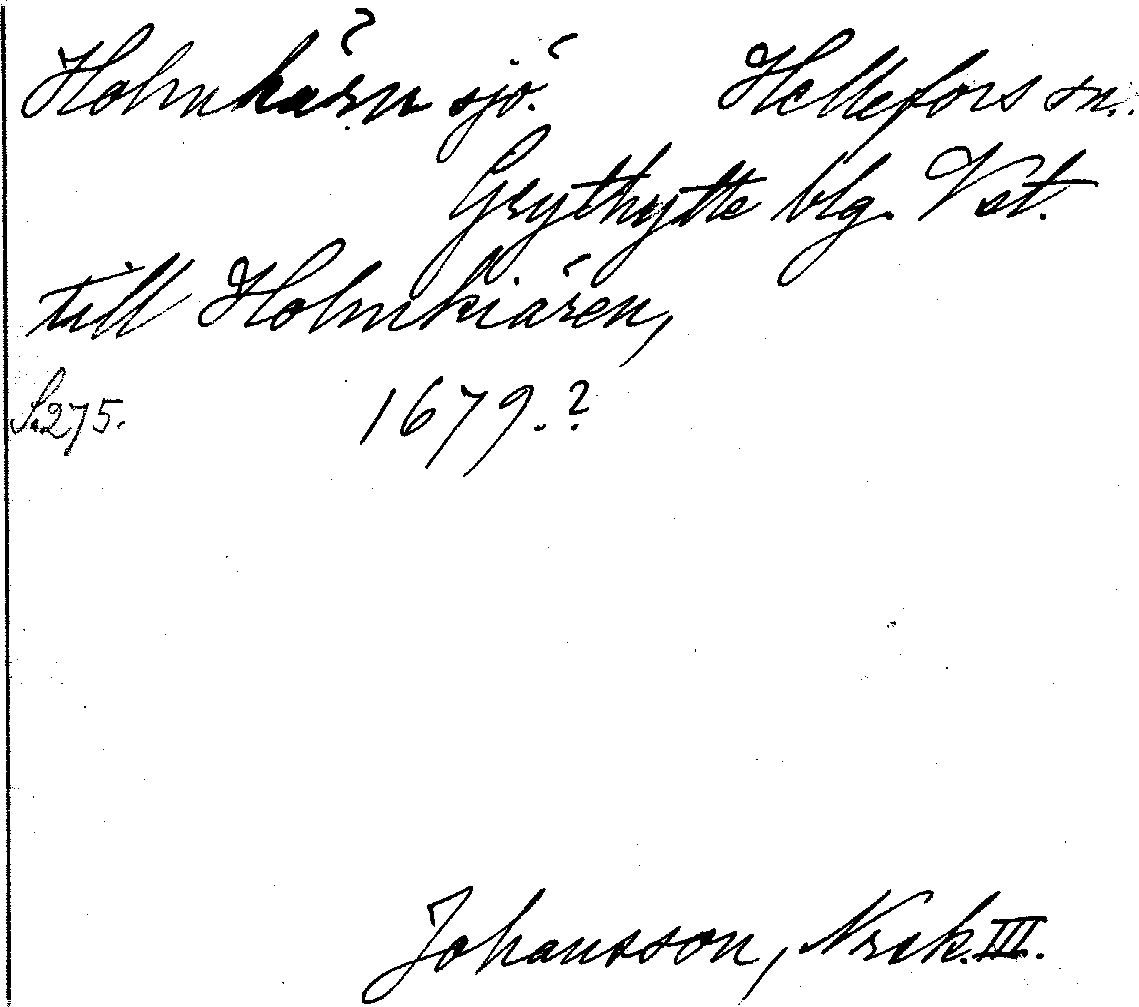 Holmkärn sjö. Hellefors sn.
Grythytte blg. Vst.
till Holmkiären,
S.275. 1679.?
Johansson, Nrck.III.